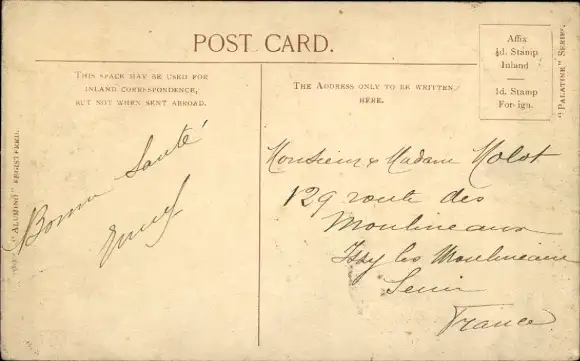 POST CARD.
THIS SPACE MAY BE USED FOR
INLAND CORRESPONDENCE,
BUT NOT WHEN SENT ABROAD.
THE ADDRESS ONLY TO BE WRITTEN
HERE.
Affix
½d. Stamp
Inland
1d. Stamp
Foreign.
"PALATINE" SERIES.
"ALUMINO" REGISTERED.
Bonne Santé
Monsieur & Madam Molot
129 route des
Moulineaux
Issy les Moulineaux
Seine
France